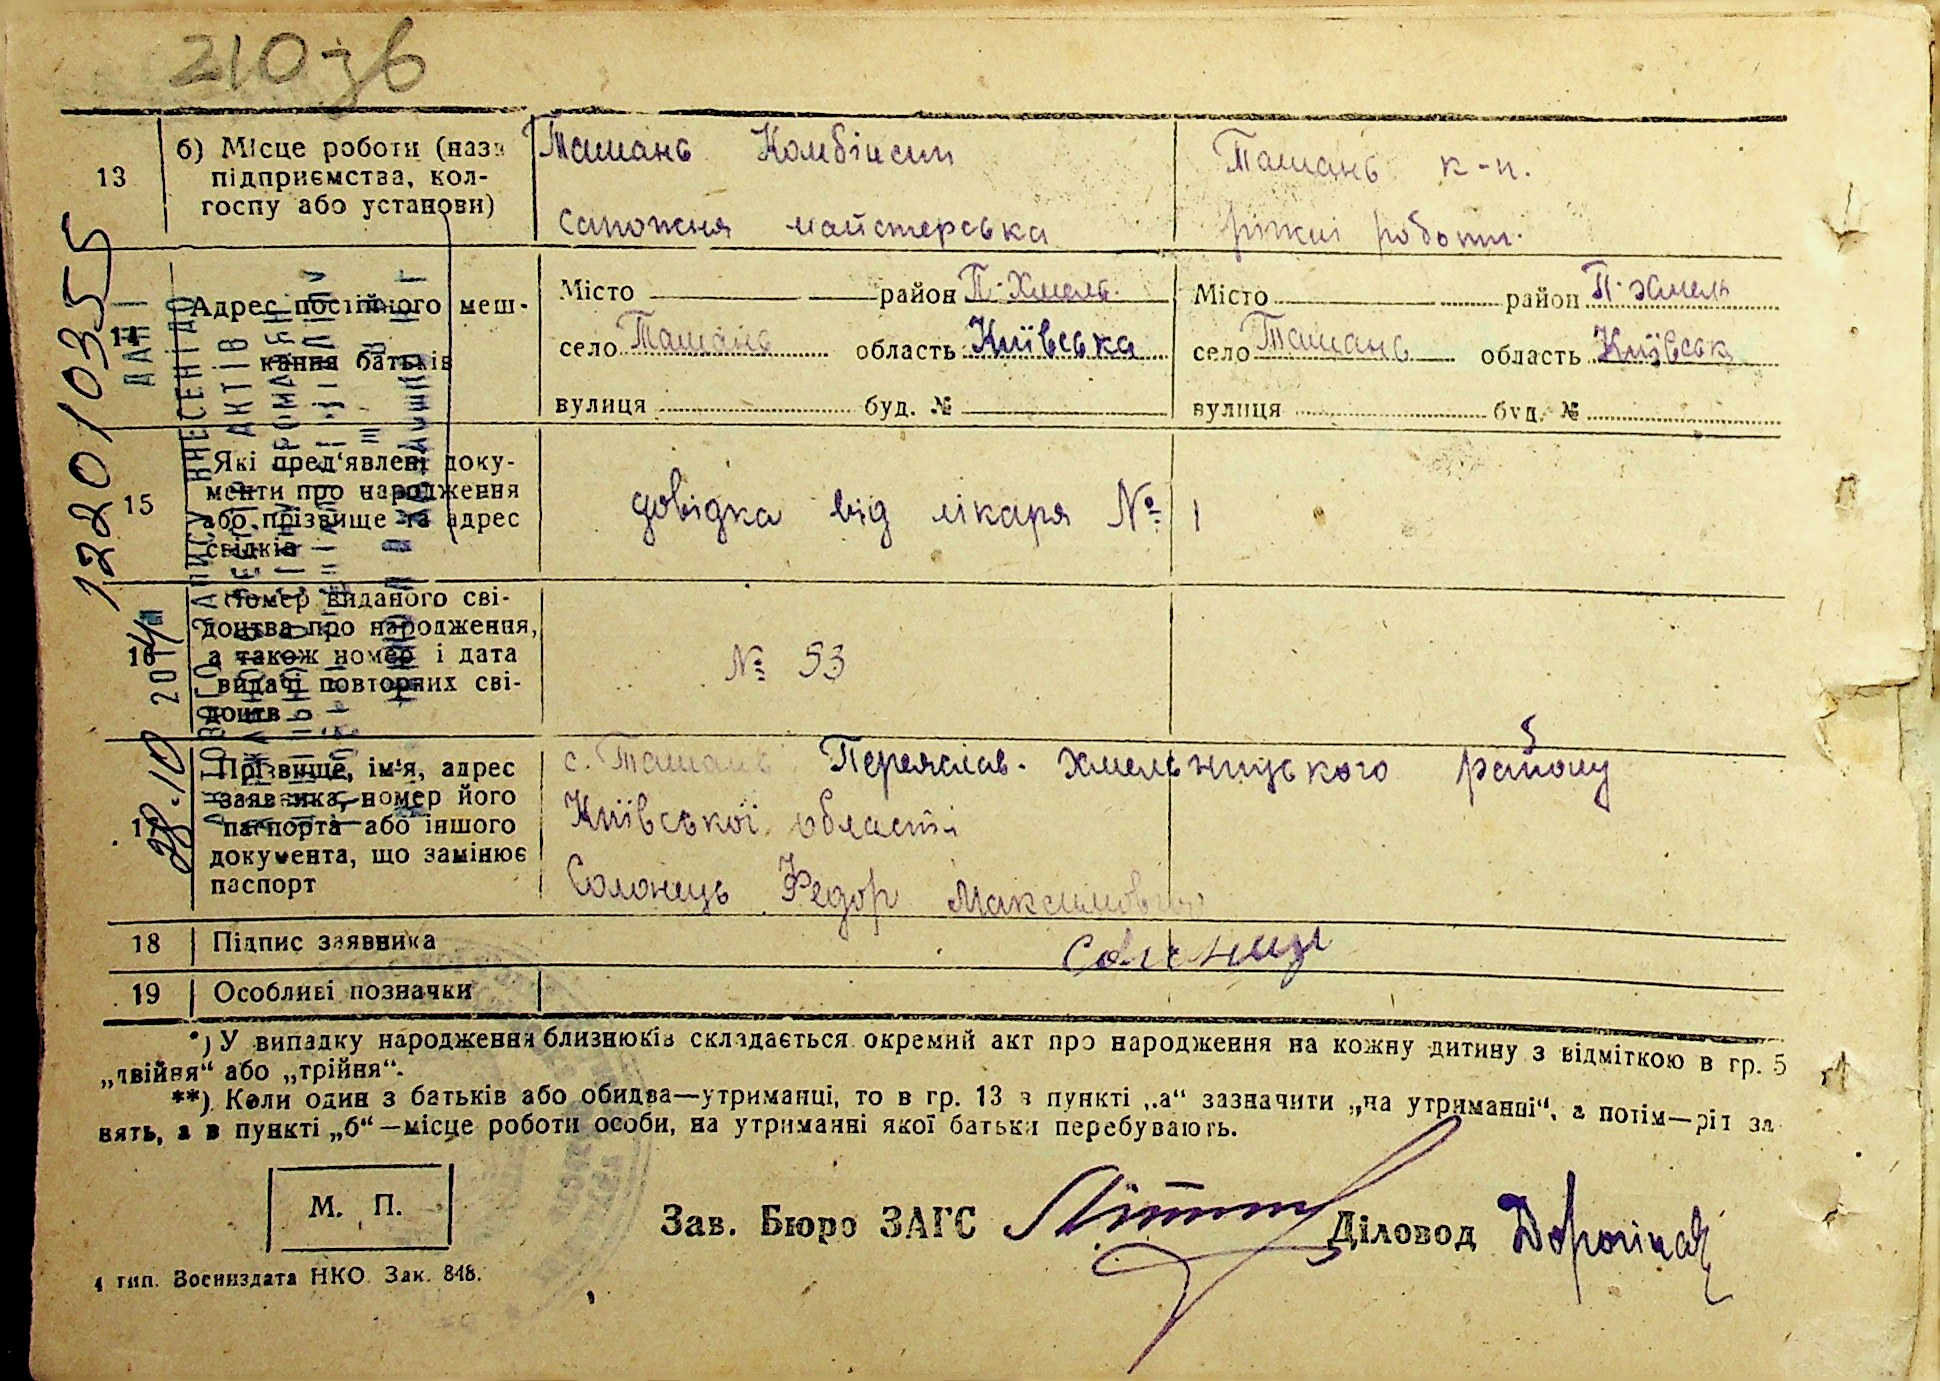 210зв
13
б) Місце роботи (назв
підприємства, кол-
госпу або установи)
Ташань Комбінат
сапожня майстерська
Ташань к-п.
ріжні роботи.
14
Адрес постійного меш-
кання батьків
Місто район П-Хмель.
село Ташань область Київська
вулиця буд. №
Місто район П-Хмель
село Ташань область Київськ
вулиця буд. №
15
Які пред'явлені доку-
менти про народження
або прізвище та адрес
свідків
довідка від лікаря № 1
16
Номер виданого сві-
доцтва про народження,
а також номер і дата
видачі повторних сві-
доцтв
№ 53
17
Прізвище, ім'я, адрес
заявника, номер його
паспорта або іншого
документа, що замінює
паспорт
с. Ташань Переяслав-Хмельницького району
Київської області
Солонець Федор Максимович
18 Підпис заявника
19 Особливі позначки
*) У випадку народження близнюків складається окремий акт про народження на кожну дитину з відміткою в гр. 5
„двійня“ або „трійня“.
**) Коли один з батьків або обидва—утриманці, то в гр. 13 в пункті „а“ зазначити „на утриманні“, а потім—рід за
нять, а в пункті „б“—місце роботи особи, на утриманні якої батьки перебувають.
М. П.
Зав. Бюро ЗАГС
Діловод
4 тип. Воениздата НКО. Зак. 848.
12201035
ДАНІ
АКТОВОГО ЗАПИСУ ВНЕСЕНІ ДО
28.10 2014